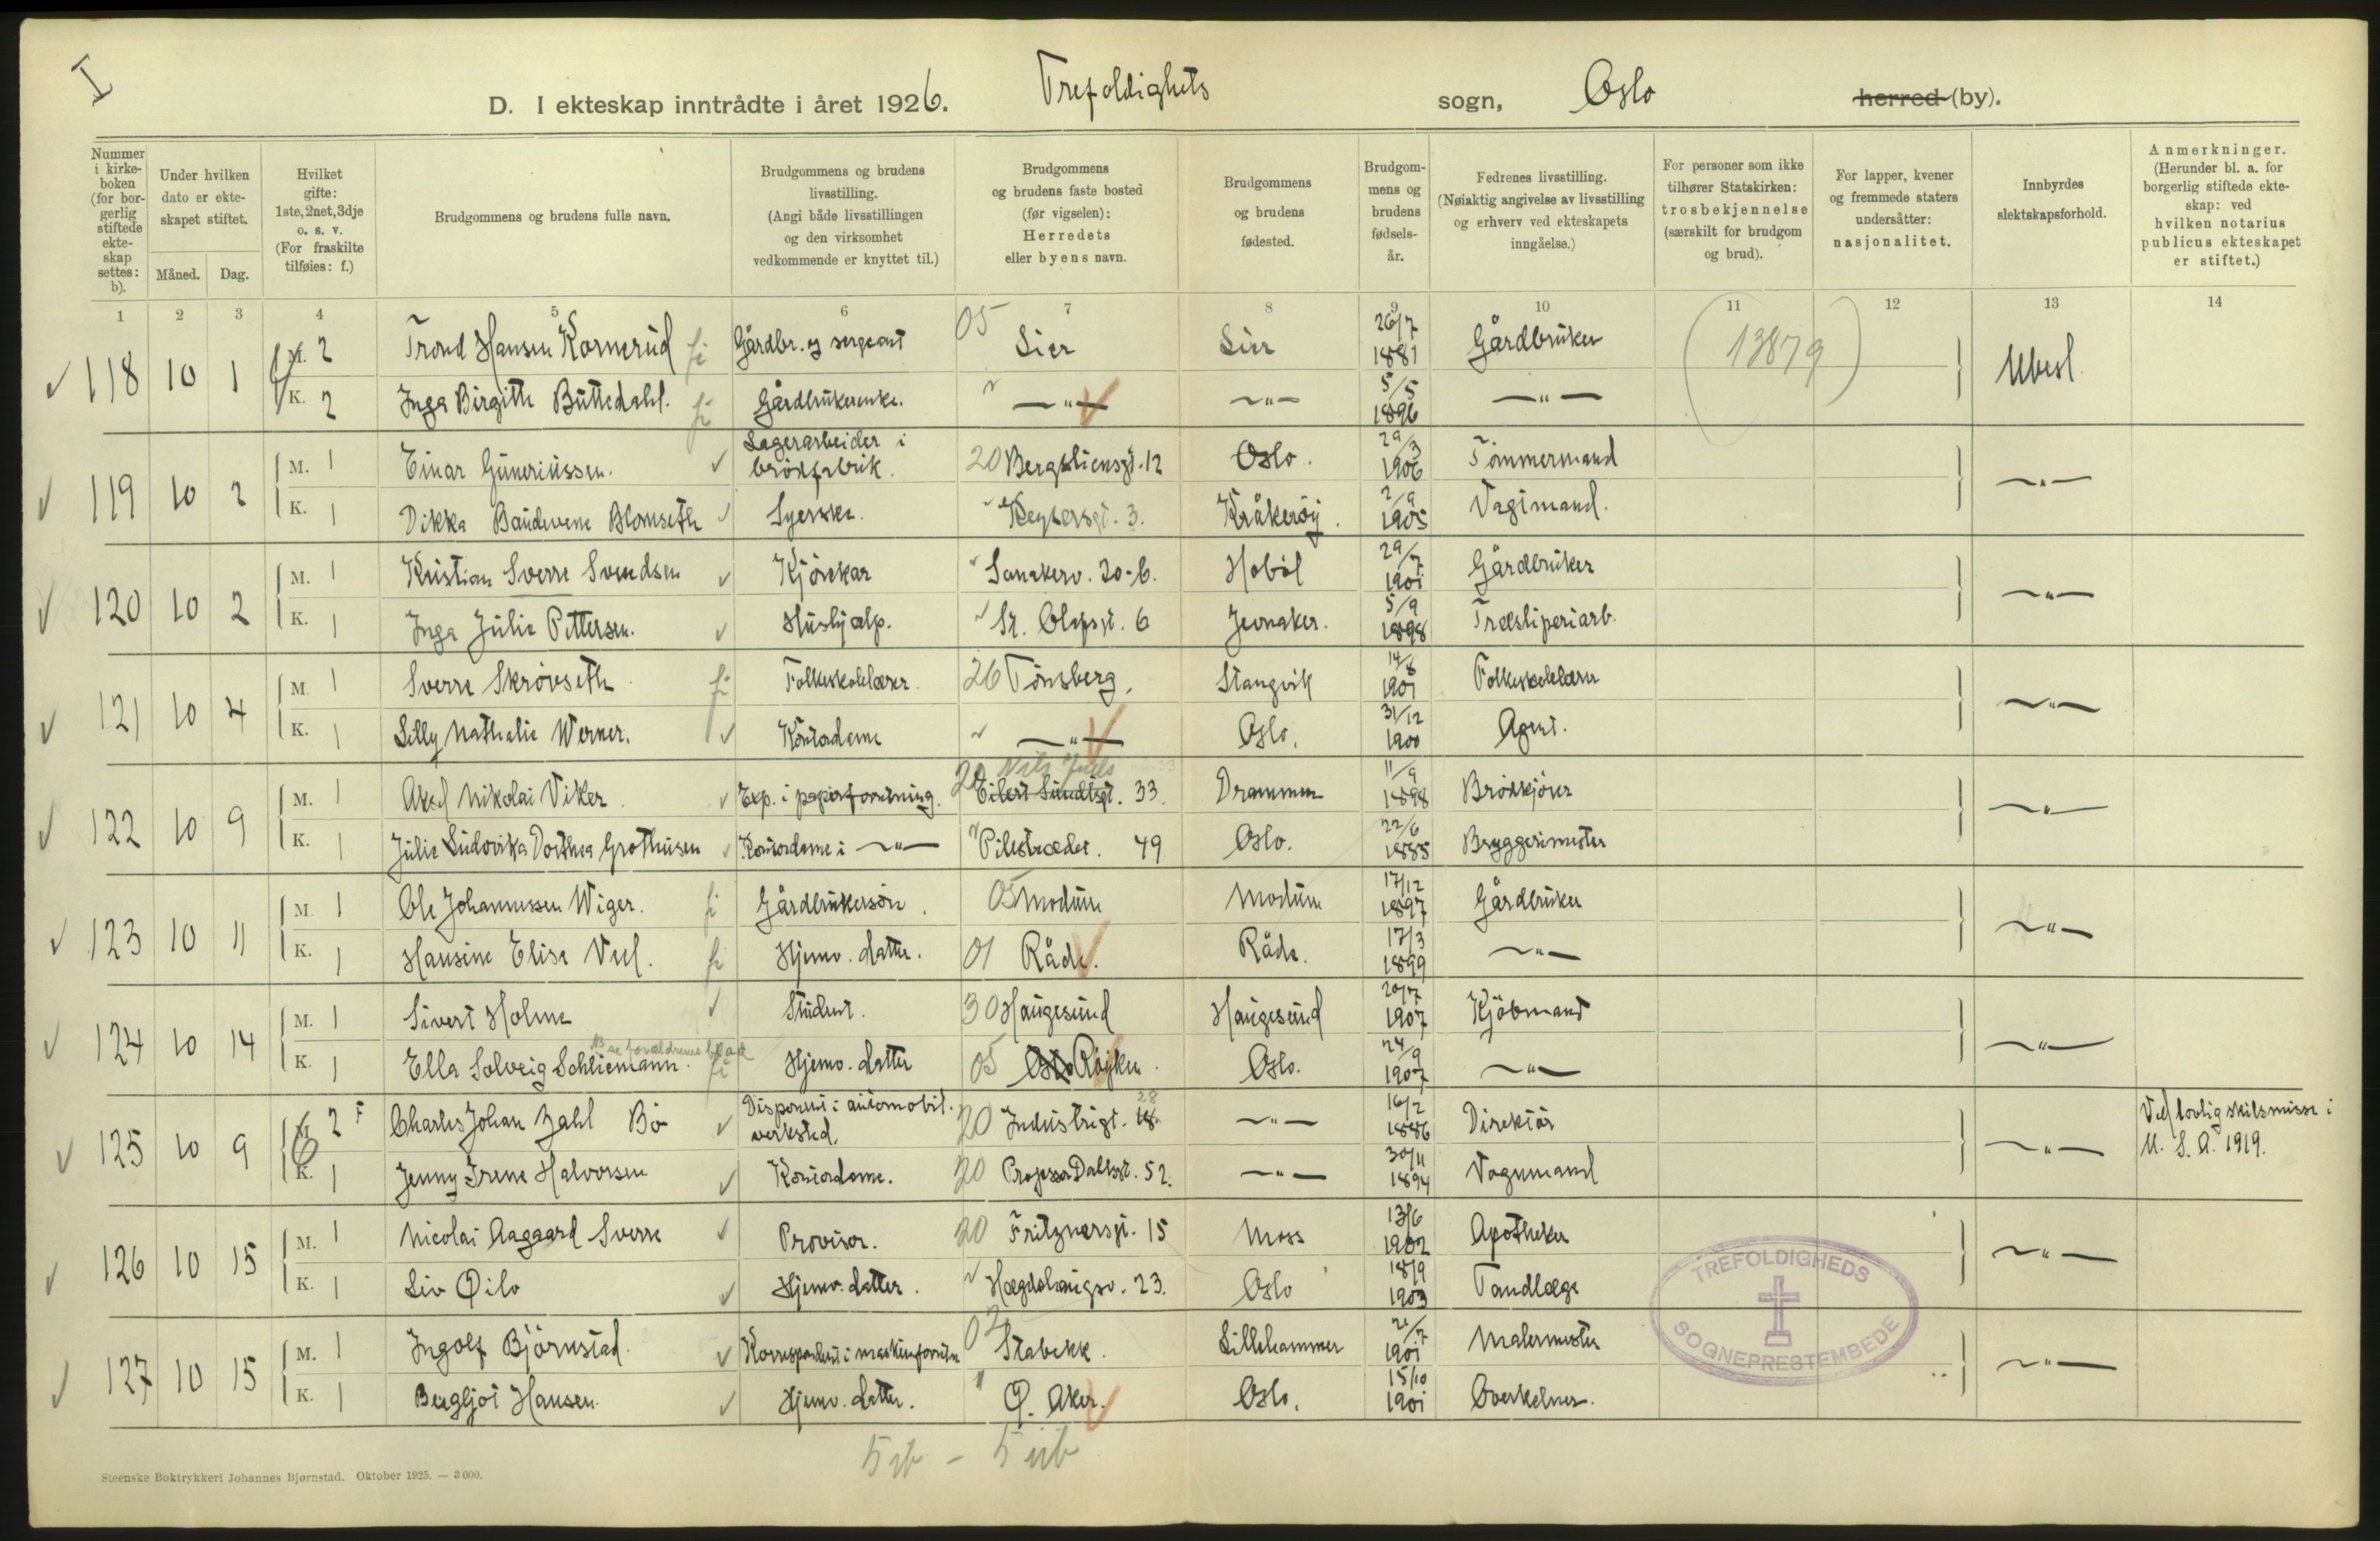 I
D. I ekteskap inntrådte i året 1926. Trefoldighets sogn, Oslo herred (by).
Nummer i kirkeboken (for borgerlig stiftede ekteskap settes: b).
Under hvilken dato er ekteskapet stiftet.
Måned. Dag.
Hvilket gifte: 1ste, 2net, 3dje o. s. v. (For fraskilte tilføies: f.)
Brudgommens og brudens fulle navn.
Brudgommens og brudens livsstilling. (Angi både livsstillingen og den virksomhet vedkommende er knyttet til.)
Brudgommens og brudens faste bosted (før vigselen): Herredets eller byens navn.
Brudgommens og brudens fødested.
Brudgommens og brudens fødselsår.
Fedrenes livsstilling. (Nøiaktig angivelse av livsstilling og erhverv ved ekteskapets inngåelse.)
For personer som ikke tilhører Statskirken: trosbekjennelse (særskilt for brudgom og brud).
For lapper, kvener og fremmede staters undersåtter: nasjonalitet.
Innbyrdes slektskapsforhold.
Anmerkninger. (Herunder bl. a. for borgerlig stiftede ekteskap: ved hvilken notarius publicus ekteskapet er stiftet.)
1 2 3 4 5 6 7 8 9 10 11 12 13 14
118 10 1 M. 2 Trond Hansen Kornerud fi Gårdbr. og sergeant 05 Sier Sier 26/7 1881 Gårdbruker (13879) Ubesl.
K. 2 Inga Birgitte Buttedahl. fi Gårdbrukerenke. —"— —"— 5/5 1896 —"—
119 10 2 M. 1 Einar Guneriussen. Lagerarbeider i brödfabrik. 20 Bergsliensgt. 12 Oslo. 29/3 1906 Tömmermand —"—
K. 1 Dikka Baudevene Blomseth Syerske. Keysersgt. 3. Kråkeröy. 2/9 1905 Vagtmand.
120 10 2 M. 1 Kristian Sverre Svendsen Kjörekar Sanakerv. 20-b. Hobøl 29/7 1901 Gårdbruker —"—
K. 1 Inga Julie Pettersen. Hushjælp. St. Olafsgt. 6 Jevnaker. 5/9 1898 Træsliperiarb.
121 10 4 M. 1 Sverre Skrövseth fi Folkeskolelærer. 26 Tönsberg. Stangvik 14/8 1901 Folkeskolelærer —"—
K. 1 Lilly Nathalie Werner. Kontordame —"— Oslo. 31/12 1900 Agent.
122 10 9 M. 1 Aksel Nikolai Viker. Exp. i papirforretning. 20 Eilert Sundtsgt. 33. Nils Juels Drammen 11/9 1898 Brödkjörer —"—
K. 1 Julie Ludovika Dorthea Grothusen Kontordame i —"— Pilestrædet. 49 Oslo. 22/6 1885 Bryggerimester
123 10 11 M. 1 Ole Johannessen Wiger. fi Gårdbrukersön. 05 Modum Modum 17/12 1897 Gårdbruker —"—
K. 1 Hansine Elise Veel. fi Hjemv. datter. 01 Råde. Råde. 17/3 1899 —"—
124 10 14 M. 1 Sivert Holme Student. 30 Haugesund Haugesund 20/7 1907 Kjöbmand —"—
NB se forældrenes blad
K. 1 Ella Solveig Schliemann. fi Hjemv. datter 05 Oslo Röyken. Oslo. 24/9 1907 —"—
125 10 9 M. 2 F Charles Johan Zahl Bö Disponent i automobil-verksted. 20 Industrigt. 18 28 —"— 16/2 1886 Direktör —"— Ved lovlig skilsmisse i U. S. A. 1919.
K. 1 Jenny Irene Halvorsen Kontordame. 20 Professor Dahlsgt. 52. —"— 30/11 1894 Vognmand
126 10 15 M. 1 Nicolai Aagaard Sverre Provisor. 20 Fritznersgt. 15 Moss 13/6 1902 Apotheker —"—
K. 1 Liv Öilo Hjemv. datter. Hægdehaugsv. 23. Oslo 18/9 1903 Tandlæge
TREFOLDIGHEDS SOGNEPRESTEMBEDE
127 10 15 M. 1 Ingolf Björnstad. Korrespondent i maskinforretn 02 Stabekk. Lillehammer 21/7 1901 Malermester —"—
K. 1 Bergljot Hansen. Hjemv. datter. Ö. Aker. Oslo. 15/10 1901 Overkelner.
Steenske Boktrykkeri Johannes Bjørnstad. Oktober 1925. — 3000.